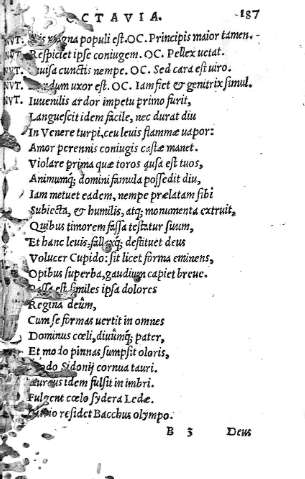 OCTAVIA. 187
NVT. Vis magna populi est. OC. Principis maior tamen.
NVT. Respiciet ipse coniugem. OC. Pellex uetat.
NVT. Inuisa cunctis nempe. OC. Sed cara est uiro.
NVT. Nondum uxor est. OC. Iam fiet & genitrix simul.
NVT. Iuuenilis ardor impetu primo furit,
Languescit idem facile, nec durat diu
In Venere turpi, ceu leuis flammæ uapor:
Amor perennis coniugis castæ manet.
Violare prima quæ toros ausa est tuos,
Animumq; domini famula possedit diu,
Iam metuet eadem, nempe prælatam sibi
Subiecta, & humilis, atq; monumenta extruit,
Quibus timorem fassa testatur suum,
Et hanc leuis, fallaxq; destituet deus
Volucer Cupido: sit licet forma eminens,
Opibus superba, gaudium capiet breue.
Passa est similes ipsa dolores
Regina deûm,
Cum se formas uertit in omnes
Dominus cœli, diuûmq; pater,
Et modo pinnas sumpsit oloris,
Modo Sidonij cornua tauri.
Aureus idem fulsit in imbri.
Fulgent cœlo sydera Ledæ.
Patrio residet Bacchus olympo.
B 3 Deus